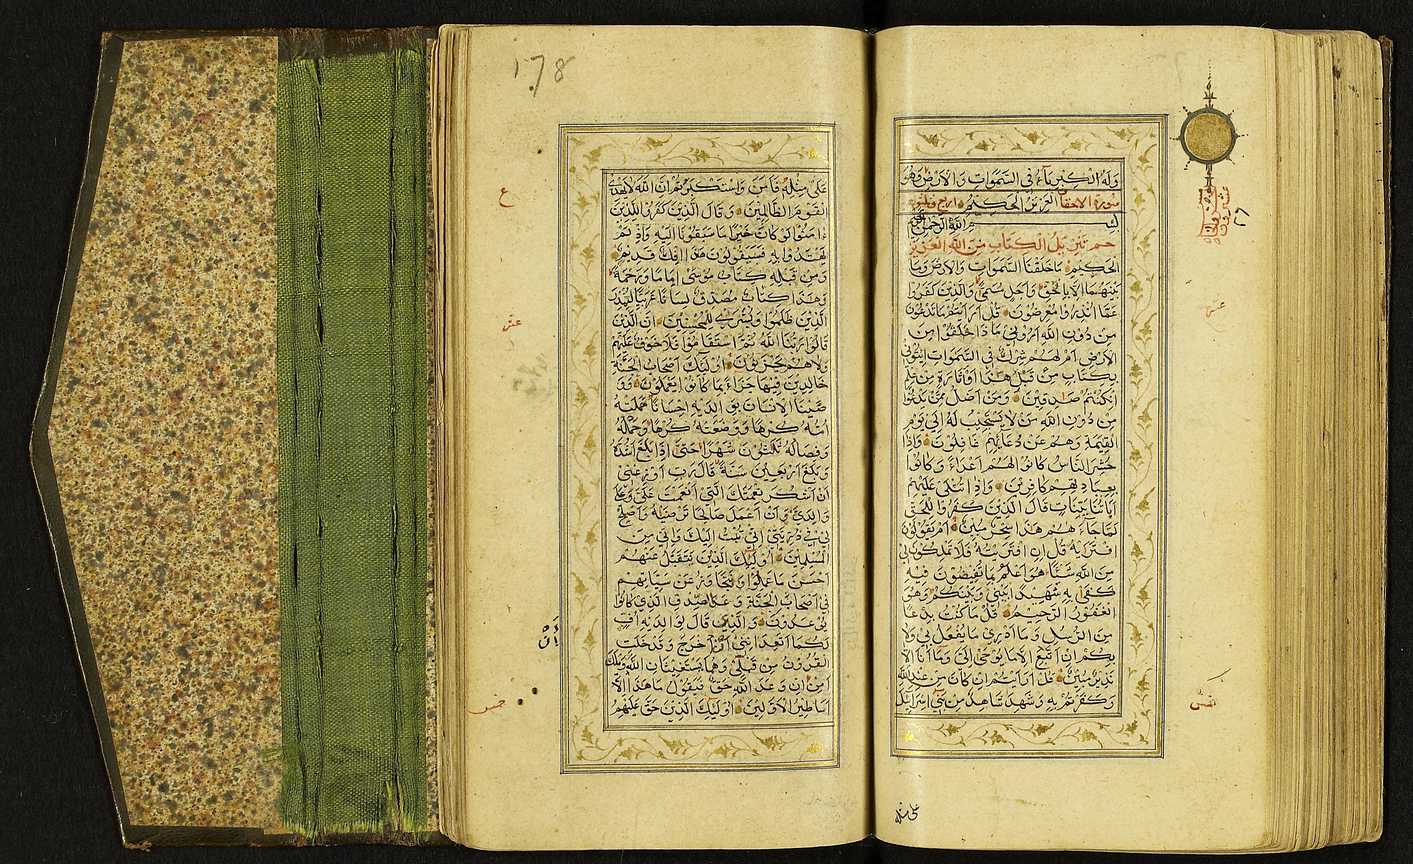 وله الكبرياء في السموات والارض وهو
سورة الاحقاف العزيز الحكيم
بسم الله الرحمن الرحيم
حم تنزيل الكتاب من الله العزيز
الحكيم ما خلقنا السموات والارض وما
بينهما الا بالحق واجل مسمى والذين كفروا
عما انذروا معرضون قل ارايتم ما تدعون
من دون الله اروني ماذا خلقوا من
الارض ام لهم شرك في السموات ايتوني
بكتاب من قبل هذا او اثارة من علم
ان كنتم صادقين ومن اضل ممن يدعوا
من دون الله من لا يستجيب له الى يوم
القيمة وهم عن دعائهم غافلون واذا
حشر الناس كانوا لهم اعداء وكانوا
بعبادتهم كافرين واذا تتلى عليهم
اياتنا بينات قال الذين كفروا للحق
لما جاءهم هذا سحر مبين ام يقولون
افتريه قل ان افتريته فلا تملكون لي
من الله شيئا هو اعلم بما تفيضون فيه
كفى به شهيدا بيني وبينكم وهو
الغفور الرحيم قل ما كنت بدعا
من الرسل وما ادري ما يفعل بي ولا
بكم ان اتبع الا ما يوحى الي وما انا الا
نذير مبين قل ارايتم ان كان من عند الله
وكفرتم به وشهد شاهد من بني اسرائل
على مثله
٢٦
عشر
خمس
178
على مثله فامن واستكبرتم ان الله لا يهدي
القوم الظالمين وقال الذين كفروا للذين
امنوا لو كان خيرا ما سبقونا اليه واذ لم
يهتدوا به فسيقولون هذا افك قديم
ومن قبله كتاب موسى اماما ورحمة
وهذا كتاب مصدق لسانا عربيا لينذر
الذين ظلموا وبشرى للمحسنين ان الذين
قالوا ربنا الله ثم استقاموا فلا خوف عليهم
ولا هم يحزنون اولئك اصحاب الجنة
خالدين فيها جزاء بما كانوا يعملون وو
صينا الانسان بوالديه احسانا حملته
امه كرها ووضعته كرها وحمله
وفصاله ثلثون شهرا حتى اذا بلغ اشده
وبلغ اربعين سنة قال رب اوزعني
ان اشكر نعمتك التي انعمت علي وعلى
والدي وان اعمل صالحا ترضيه واصلح
لي في ذريتي اني تبت اليك واني من
المسلمين اولئك الذين نتقبل عنهم
احسن ما عملوا ونتجاوز عن سيئاتهم
في اصحاب الجنة وعد الصدق الذي كانوا
يوعدون والذي قال لوالديه اف
لكما اتعدانني ان اخرج وقد خلت
القرون من قبلي وهما يستغيثان الله ويلك
امن ان وعد الله حق فيقول ما هذا الا
اساطير الاولين اولئك الذين حق عليهم
ع
عشر
ان
خمس